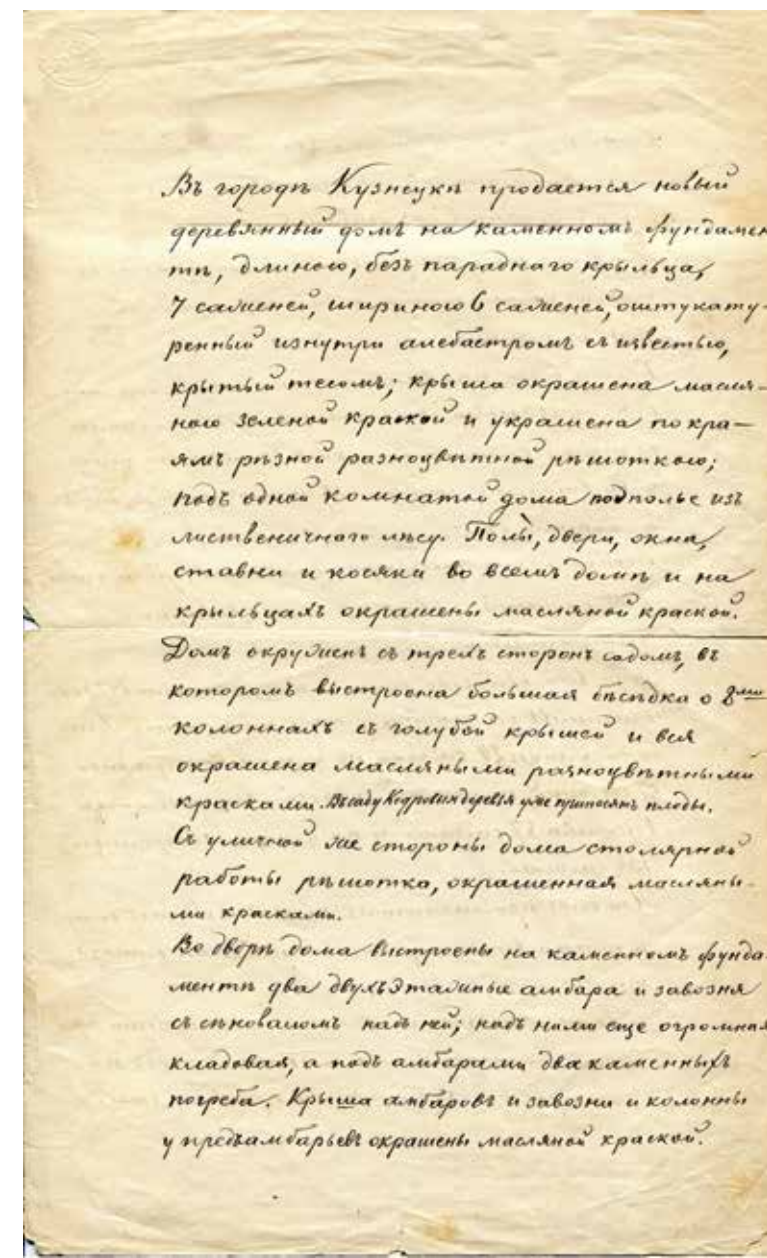 Въ городѣ Кузнецкѣ продается новый
деревянный домъ на каменномъ фундамен
тѣ, длиною, безъ параднаго крыльца,
7 саженей, шириною 6 саженей, оштукату-
ренный изнутри алебастромъ съ известью,
крытый тесомъ; крыша окрашена масля-
ною зеленой краской и украшена по кра-
ямъ рѣзной разноцвѣтной рѣшоткою;
подъ одной комнатой дома подполье изъ
лиственичнаго лѣсу. Полы, двери, окна,
ставни и косяки во всемъ домѣ и на
крыльцахъ окрашены масляной краской.
Домъ окруженъ съ трехъ сторонъ садомъ, въ
которомъ выстроена большая бѣсѣдка о 8ми
колоннахъ съ голубой крышей и вся
окрашена масляными разноцвѣтными
красками. Въ саду Кедровыя деревья уже приносятъ плоды.
Съ уличной же стороны дома столярной
работы рѣшотка, окрашенная масляны-
ми красками.
Во дворѣ дома выстроены на каменномъ фунда
ментѣ два двухъэтажные амбара и завозня
съ сѣноваломъ надъ ней; надъ ними еще огромная
кладовая, а подъ амбарами два каменныхъ
погреба. Крыша амбаровъ и завозни и колонны
у предъамбарьевъ окрашены масляной краской.